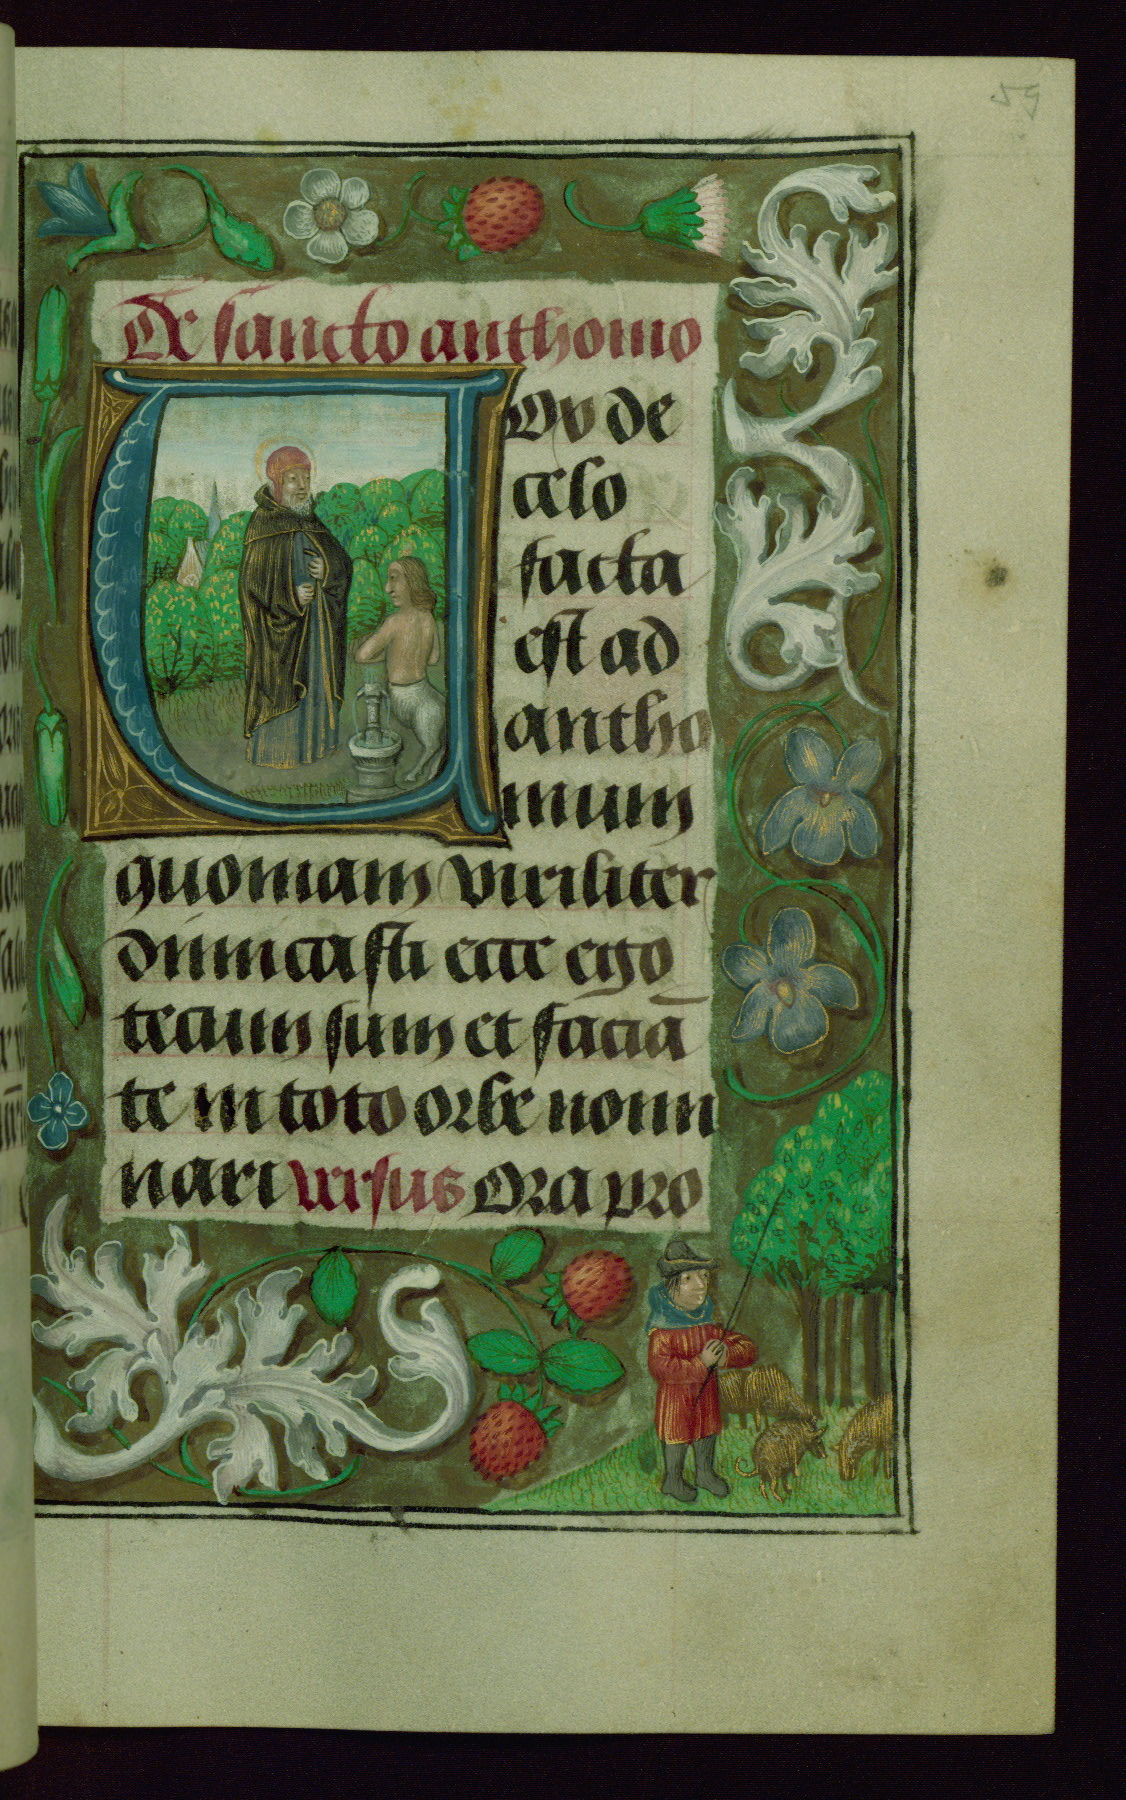 59
De sancto anthonio
Vox de
celo
facta
est ad
antho
nium
quoniam viriliter
dimicasti ecce ego
tecum sum et faciā
te in toto orbe nomi
nari ursus Ora pro